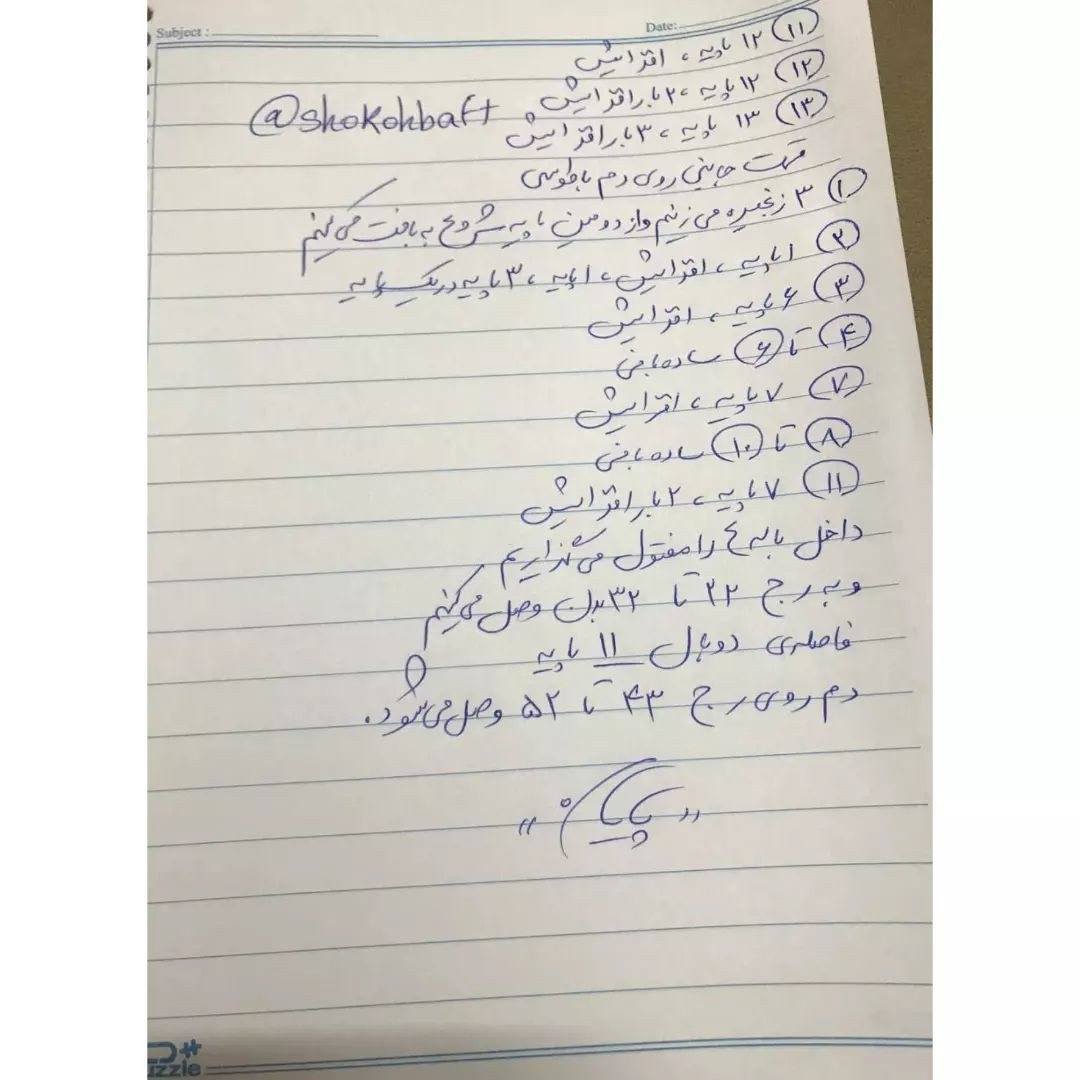 Subject :
Date:
⑪ ۱۲ پایه ، افزایش
⑫ ۱۲ پایه ، ۲ بار افزایش
@shokohbaft
⑬ ۱۳ پایه ، ۳ بار افزایش
قسمت جانبی روی دم
① ۳ زنجیره می زنیم و از دومین پایه شروع به بافت می کنیم
② ۱ پایه ، افزایش ، ۱ پایه ، ۳ پایه در یک پایه
③ ۶ پایه ، افزایش
④ تا ⑥ ساده بافی
⑦ ۷ پایه ، افزایش
⑧ تا ⑩ ساده بافی
⑪ ۷ پایه ، ۲ بار افزایش
داخل باله را مفتول می گذاریم
و به رج ۲۲ تا ۳۲ بدن وصل می کنیم
فاصله ی دو بال ۱۱ پایه
دم روی رج ۴۳ تا ۵۲ وصل می شود.
"پایان"